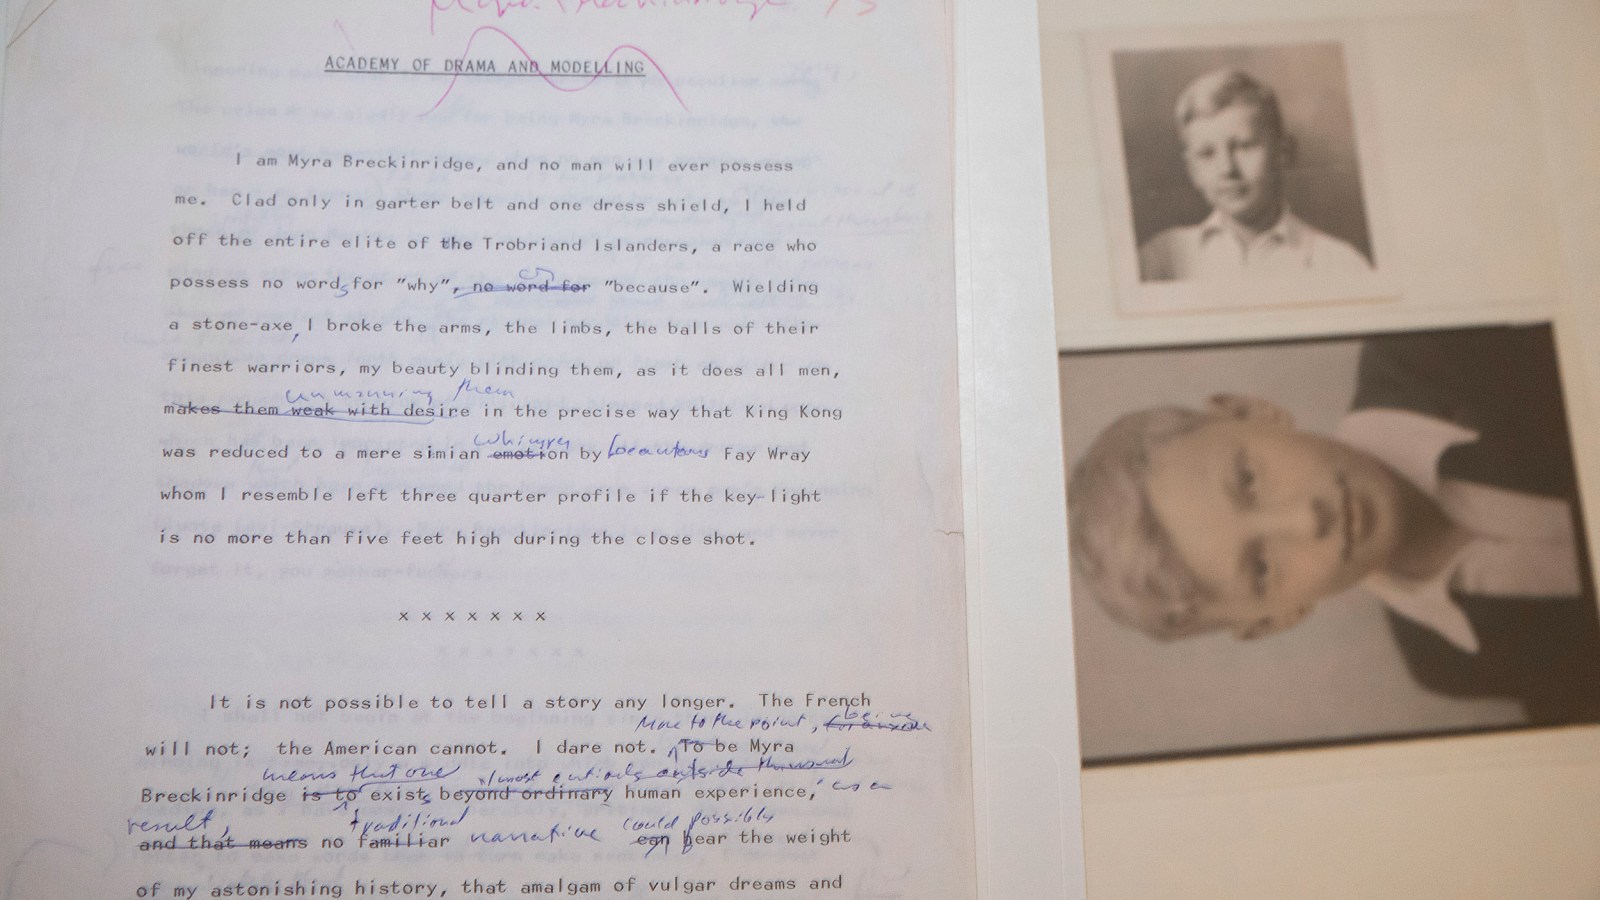 Myra Breckinridge
ACADEMY OF DRAMA AND MODELLING
I am Myra Breckinridge, and no man will ever possess
me. Clad only in garter belt and one dress shield, I held
off the entire elite of the Trobriand Islanders, a race who
possess no words for "why", no word for or "because". Wielding
a stone-axe, I broke the arms, the limbs, the balls of their
finest warriors, my beauty blinding them, as it does all men,
unmanning them
makes them weak with desire in the precise way that King Kong
whimper
was reduced to a mere simian emotion by beauteous Fay Wray
whom I resemble left three quarter profile if the key-light
is no more than five feet high during the close shot.
x x x x x x x
It is not possible to tell a story any longer. The French
More to the point, being
will not; the American cannot. I dare not. To be Myra
means that one almost entirely outside the usual
Breckinridge is to exists beyond ordinary human experience, as a
result, traditional could possibly
and that means no familiar narrative can bear the weight
of my astonishing history, that amalgam of vulgar dreams and